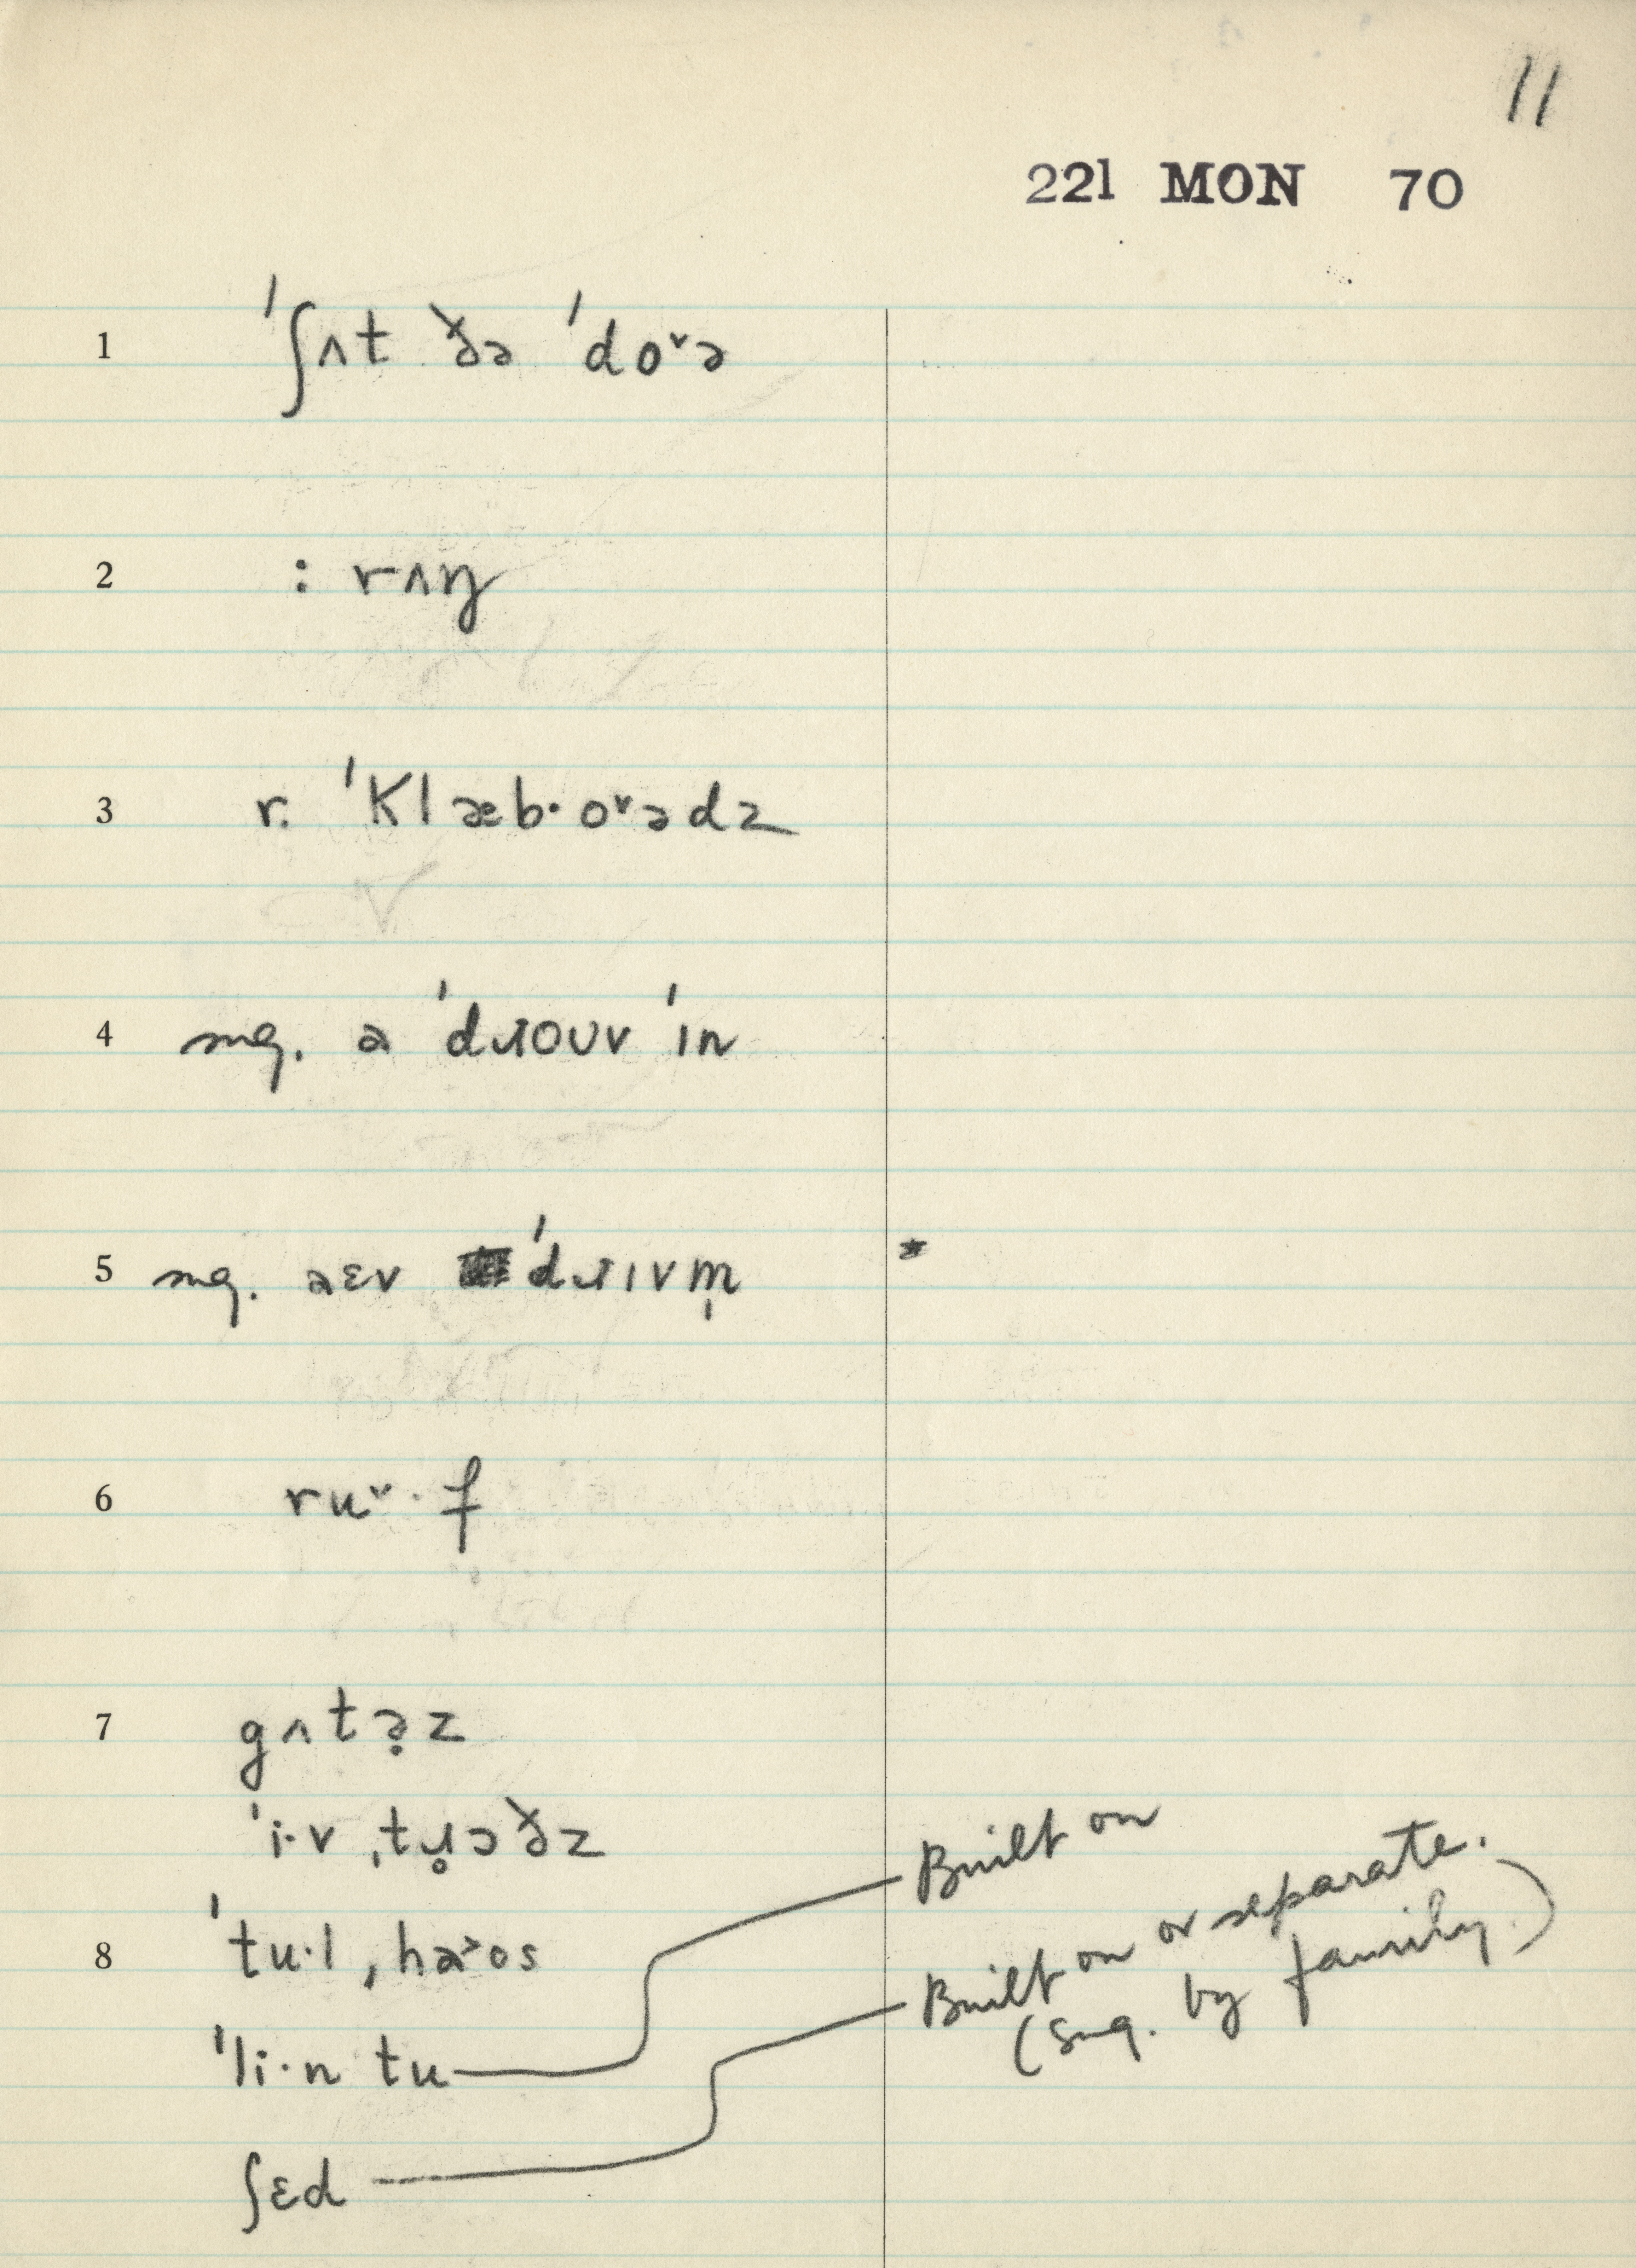 11
221 MON 70
1 ˈʃʌt ðə ˈdoˇə
2 : rʌŋ
3 r. ˈklæb·oˇədz
4 sug. ə ˈdɹoʊv ˈɪn
5 sug. əɛv ˈdɹɪvm̩ *
6 ruˇ·f
7 gʌtə̣z
ˈi·v ˌtɹ̥ɔðz
8 ˈtu·l ˌha˃ʊs
ˈli·n tu Built on
ʃɛd Built on or separate.
(Sug. by family.)